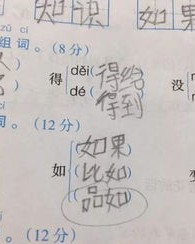 知识 如果
zǔ cí
组词。(8分)
得 děi 得给 没
dé 得到
词。(12分)
如 如果
比如
品如
。(12分)